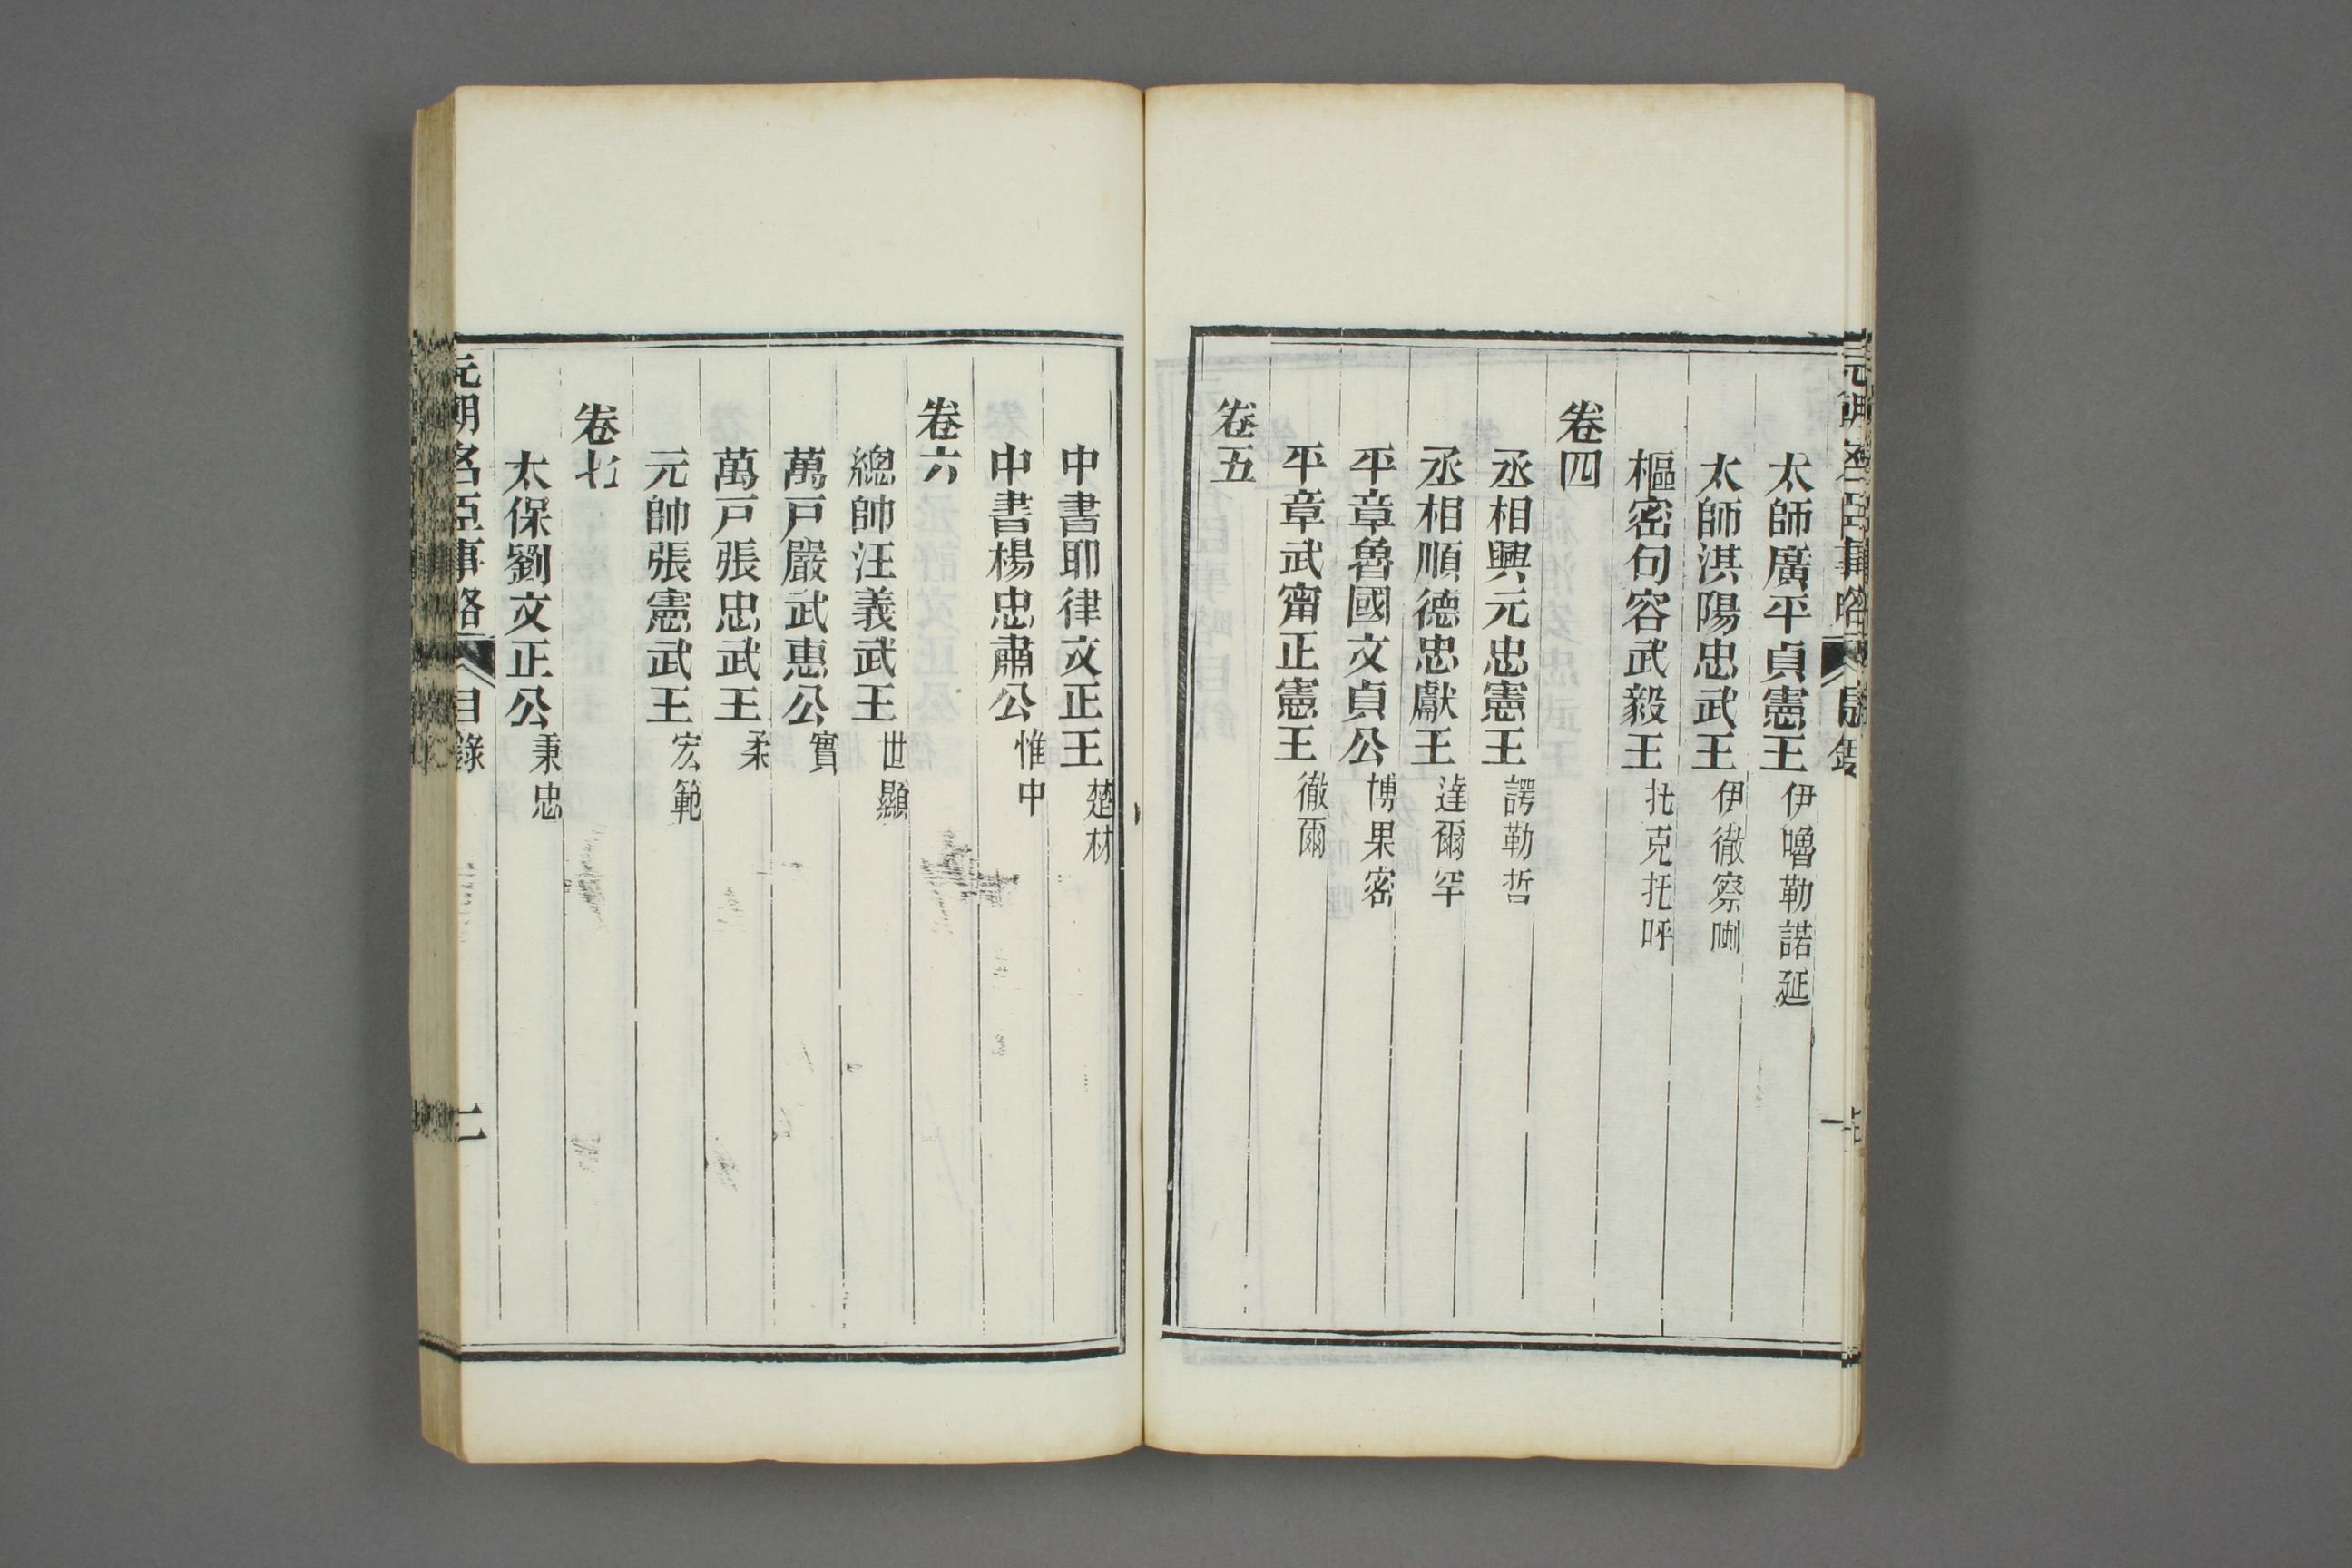 太師廣平貞憲王伊嚕勒諾延
太師淇陽忠武王伊徹察喇
樞密句容武毅王托克托呼
卷四
丞相興元忠憲王諤勒哲
丞相順德忠獻王達爾罕
平章魯國文貞公博果密
平章武甯正憲王徹爾
卷五
中書耶律文正王楚材
中書楊忠肅公惟中
卷六
總帥汪義武王世顯
萬戸嚴武惠公實
萬戸張忠武王柔
元帥張憲武王宏範
卷七
太保劉文正公秉忠
元朝名臣事略 目錄